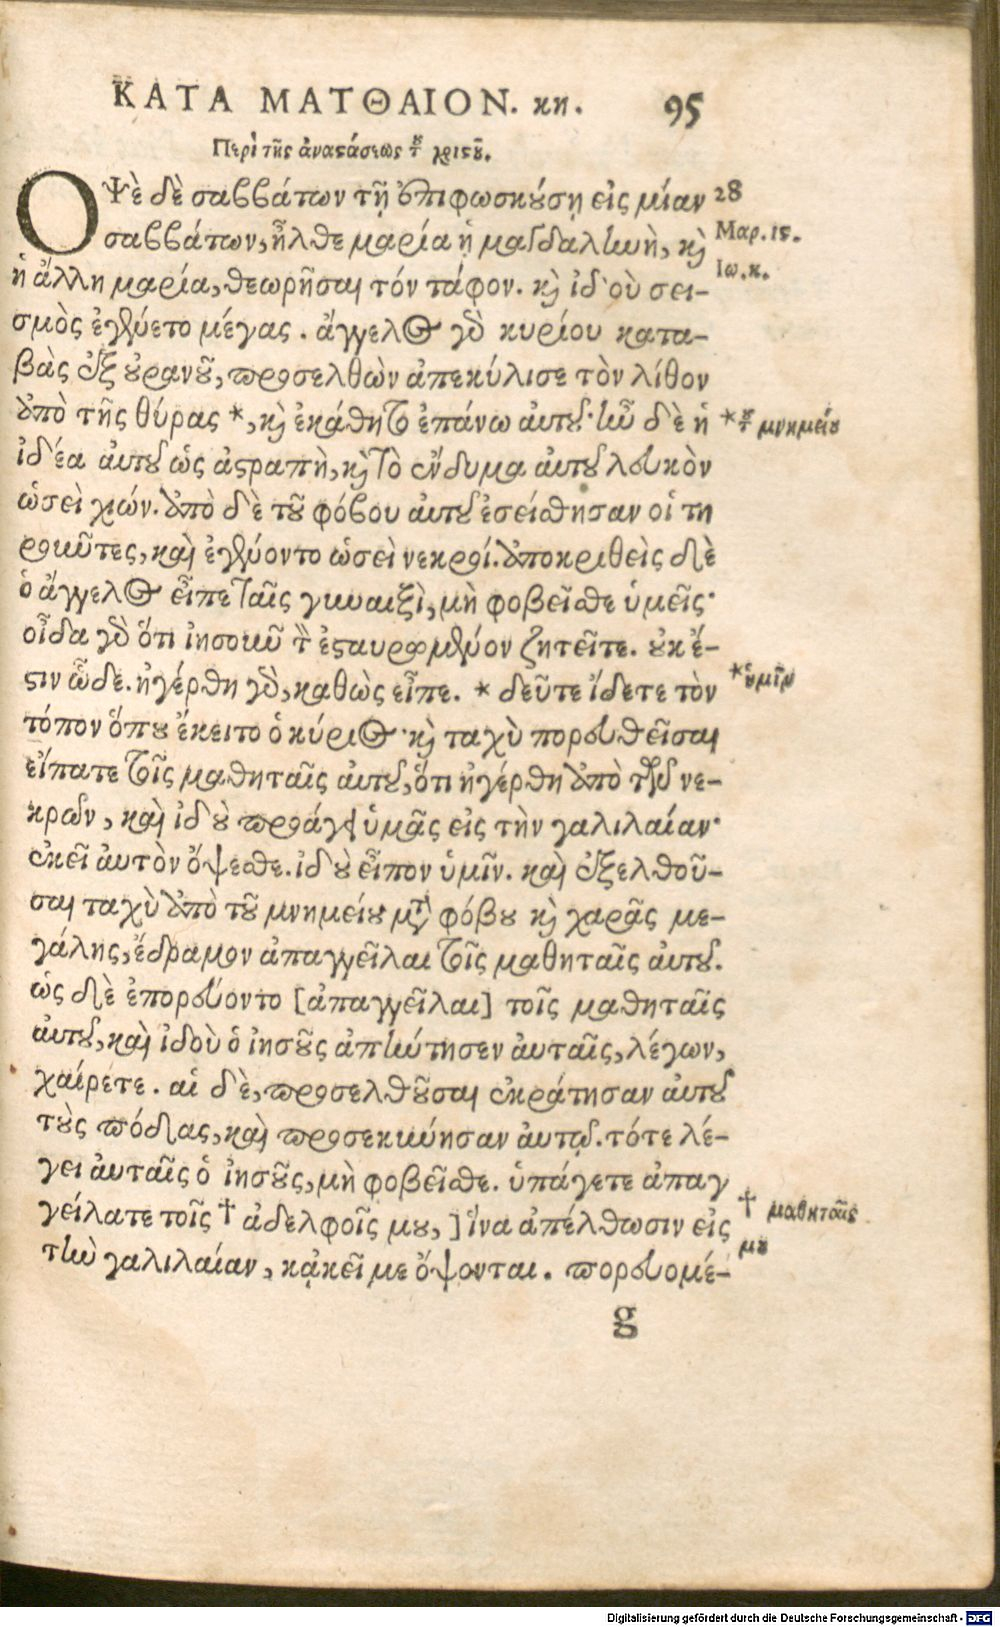 ΚΑΤΑ ΜΑΤΘΑΙΟΝ. κη. 95
Περὶ τῆς ἀναστάσεως τοῦ χριστοῦ.
ΟΨὲ δὲ σαββάτων τῇ ἐπιφωσκούσῃ εἰς μίαν 28
σαββάτων, ἦλθε μαρία ἡ μαγδαληνὴ, καὶ Μαρ. 15.
ἡ ἄλλη μαρία, θεωρῆσαι τόν τάφον. καὶ ἰδοὺ σει- Ιω. κ.
σμὸς ἐγένετο μέγας. ἄγγελος γὰρ κυρίου κατα-
βὰς ἐξ οὐρανοῦ, προσελθὼν ἀπεκύλισε τὸν λίθον
ἀπὸ τῆς θύρας *, καὶ ἐκάθητο ἐπάνω αὐτοῦ· ἦν δὲ ἡ * τοῦ μνημείου
ἰδέα αὐτοῦ ὡς ἀστραπὴ, καὶ τὸ ἔνδυμα αὐτοῦ λευκὸν
ὡσεὶ χιών. ἀπὸ δὲ τοῦ φόβου αὐτοῦ ἐσείσθησαν οἱ τη
ροῦντες, καὶ ἐγένοντο ὡσεὶ νεκροί. ἀποκριθεὶς δὲ
ὁ ἄγγελος εἶπε ταῖς γυναιξὶ, μὴ φοβεῖσθε ὑμεῖς·
οἶδα γὰρ ὅτι ἰησοῦν τὸν ἐσταυρωμένον ζητεῖτε. οὐκ ἔ-
στιν ὧδε. ἠγέρθη γὰρ, καθὼς εἶπε. * δεῦτε ἴδετε τὸν * ὑμῖν
τόπον ὅπου ἔκειτο ὁ κύριος· καὶ ταχὺ πορευθεῖσαι
εἴπατε τοῖς μαθηταῖς αὐτοῦ, ὅτι ἠγέρθη ἀπὸ τῶν νε-
κρῶν, καὶ ἰδοὺ προάγει ὑμᾶς εἰς τὴν γαλιλαίαν·
ἐκεῖ αὐτὸν ὄψεσθε. ἰδοὺ εἶπον ὑμῖν. καὶ ἐξελθοῦ-
σαι ταχὺ ἀπὸ τοῦ μνημείου μετὰ φόβου καὶ χαρᾶς με-
γάλης, ἔδραμον ἀπαγγεῖλαι τοῖς μαθηταῖς αὐτοῦ.
ὡς δὲ ἐπορεύοντο [ἀπαγγεῖλαι] τοῖς μαθηταῖς
αὐτοῦ, καὶ ἰδοὺ ὁ ἰησοῦς ἀπήντησεν αὐταῖς, λέγων,
χαίρετε. αἱ δὲ, προσελθοῦσαι ἐκράτησαν αὐτοῦ
τοὺς πόδας, καὶ προσεκύνησαν αὐτῷ. τότε λέ-
γει αὐταῖς ὁ ἰησοῦς, μὴ φοβεῖσθε. ὑπάγετε ἀπαγ
γείλατε τοῖς † ἀδελφοῖς μου, ] ἵνα ἀπέλθωσιν εἰς † μαθηταῖς μου
τὴν γαλιλαίαν, κἀκεῖ με ὄψονται. πορευομέ-
g
Digitalisierung gefördert durch die Deutsche Forschungsgemeinschaft - DFG